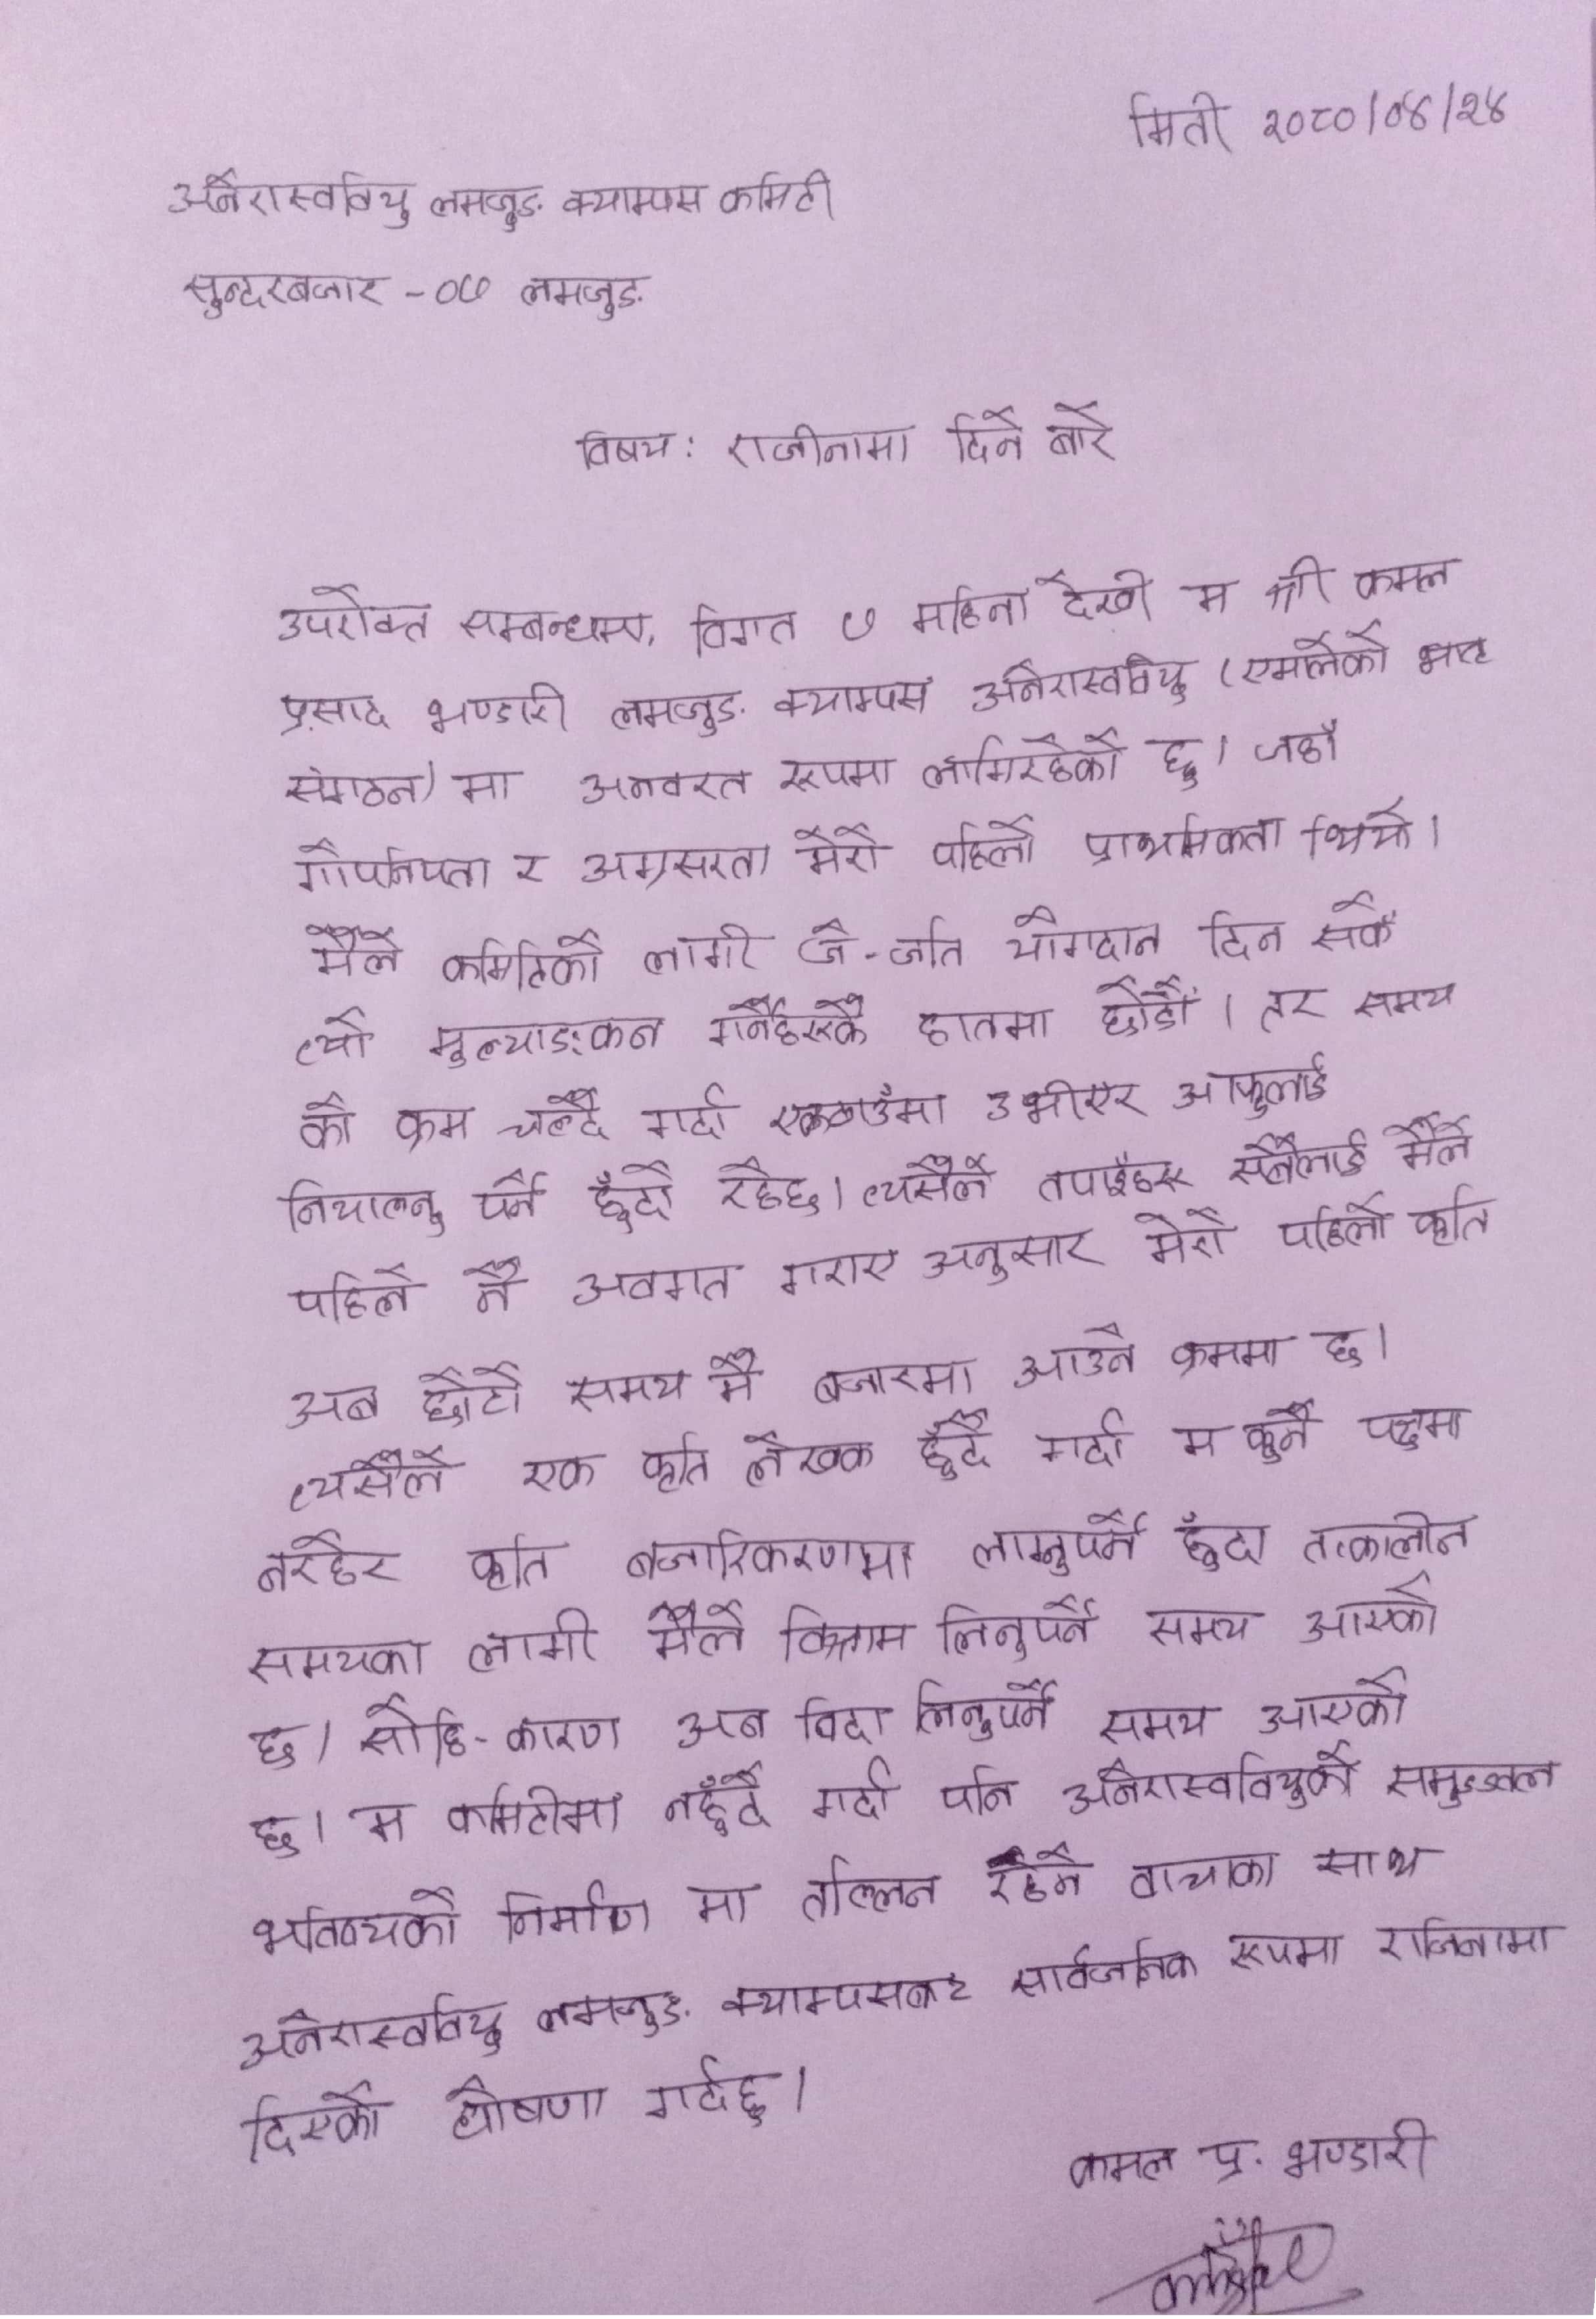 मिती २०८०/०४/२४
अनेरास्ववियु लमजुङ क्याम्पस कमिटी
सुन्दरबजार -०७ लमजुङ
विषय: राजीनामा दिने बारे
उपरोक्त सम्बन्धमा, विगत ७ महिना देखी म श्री कमल
प्रसाद भण्डारी लमजुङ क्याम्पस अनेरास्ववियु (एमालेको भातृ
संगठन) मा अनवरत रूपमा लागिरहेको छु। जहाँ
गोपनियता र अग्रसरता मेरो पहिलो प्राथमिकता थियो।
मैले कमिटिको लागी जे-जति योगदान दिन सकेँ
त्यो मुल्याङ्कन गर्नेहरूकै हातमा छोडेँ। तर समय
को क्रम चल्दै गर्दा एकठाउँमा उभीएर आफुलाई
नियाल्नु पर्ने हुँदो रहेछ। त्यसैले तपाईहरू सबैलाई मैले
पहिले नै अवगत गराए अनुसार मेरो पहिलो कृति
अब छोटो समय मै बजारमा आउने क्रममा छ।
त्यसैले एक कृति लेखक हुँदै गर्दा म कुनै पदमा
नरहेर कृति बजारिकरणमा लाग्नुपर्ने हुँदा तत्कालीन
समयका लागी मैले विश्राम लिनुपर्ने समय आएको
छ। सोहि-कारण अब विदा लिनुपर्ने समय आएको
छ। म कमिटीमा नहुँदै गर्दा पनि अनेरास्ववियुको समुज्ज्वल
भविष्यको निर्माण मा तल्लिन रहने वाचाका साथ
अनेरास्ववियु लमजुङ क्याम्पसबाट सार्वजनिक रूपमा राजिनामा
दिएको घोषणा गर्दछु।
कमल प्र. भण्डारी